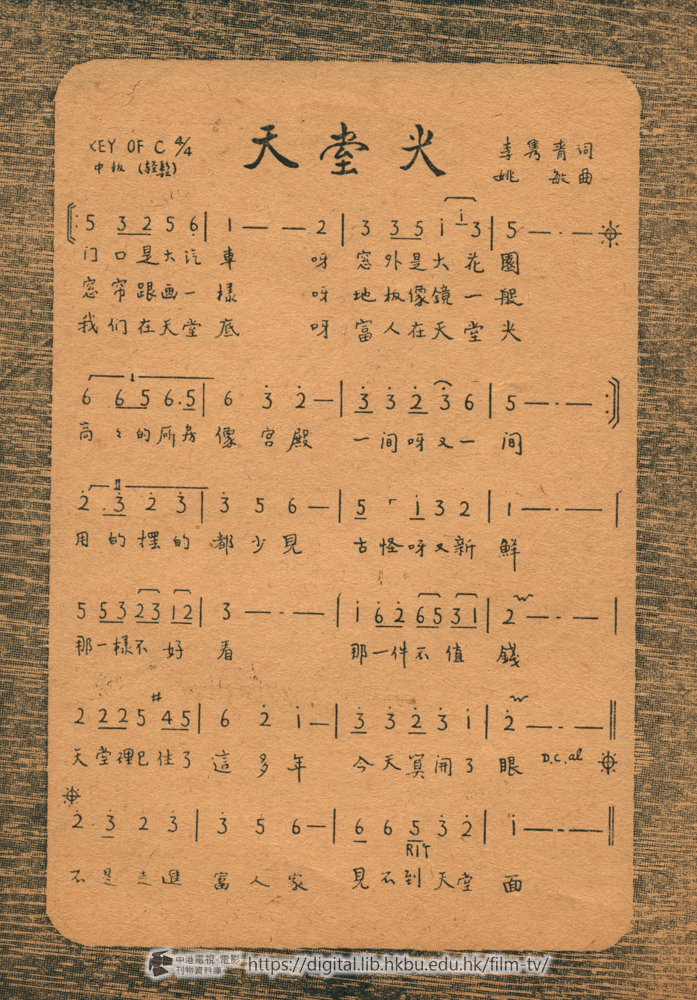 KEY OF C 4/4
中板 (轻鬆)
天堂火
李雋青 词
姚敏 曲
5 3 2 5 6 | 1 — — 2 | 3 3 5 i i 3 | 5 — · —
门口是大汽車 呀 窓外是大花園
窓帘跟画一樣 呀 地板像鏡一般
我们在天堂底 呀 富人在天堂火
1
6 6 5 6 · 5 | 6 3 2 — | 3 3 2 3 6 | 5 — · —
高々的厕房像宮殿 一间呀又一间
II
2 · 3 2 3 | 3 5 6 — | 5 i 3 2 | 1 — · —
用的擺的都少見 古怪呀又新鮮
5 5 3 2 3 1 2 | 3 — · — | i 6 2 6 5 3 1 | 2 — · —
那一樣不好看 那一件不值錢
2 2 2 5 #4 5 | 6 2 i — | 3 3 2 3 i | 2 — · —
天堂裡已住了這多年 今天算開了眼 D.C. al
2 · 3 2 3 | 3 5 6 — | 6 6 5 3 2 | i — · —
RIT
不是走進富人家 見不到天堂面
中港電視·電影
刊物資料庫
https://digital.lib.hkbu.edu.hk/film-tv/